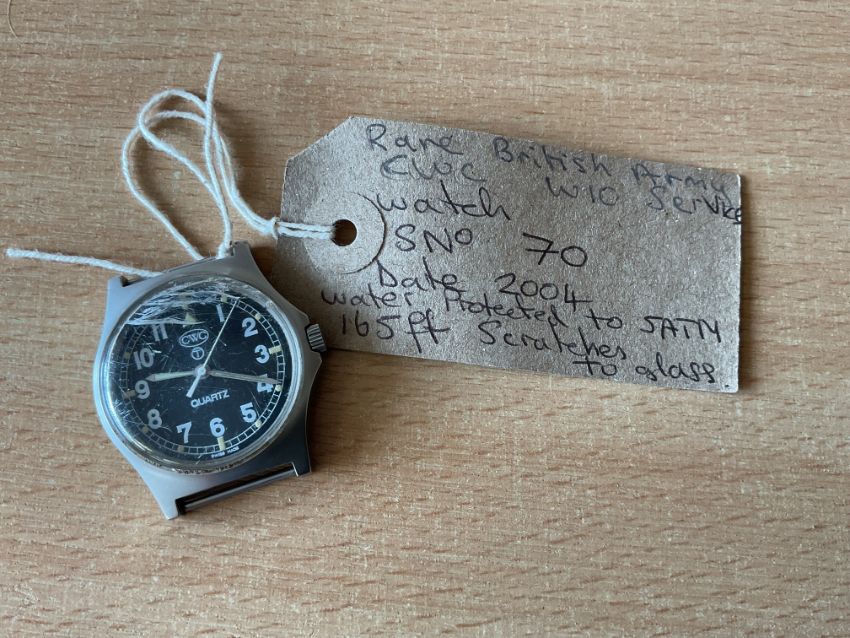 Rare British Army
CWC W10 Service
watch
SNo 70
Date 2004
water Protected to 5ATM
165ft Scratches
to glass
11 1
10 2
9 3
8 4
7 6 5
CWC
T
QUARTZ
SWISS MADE